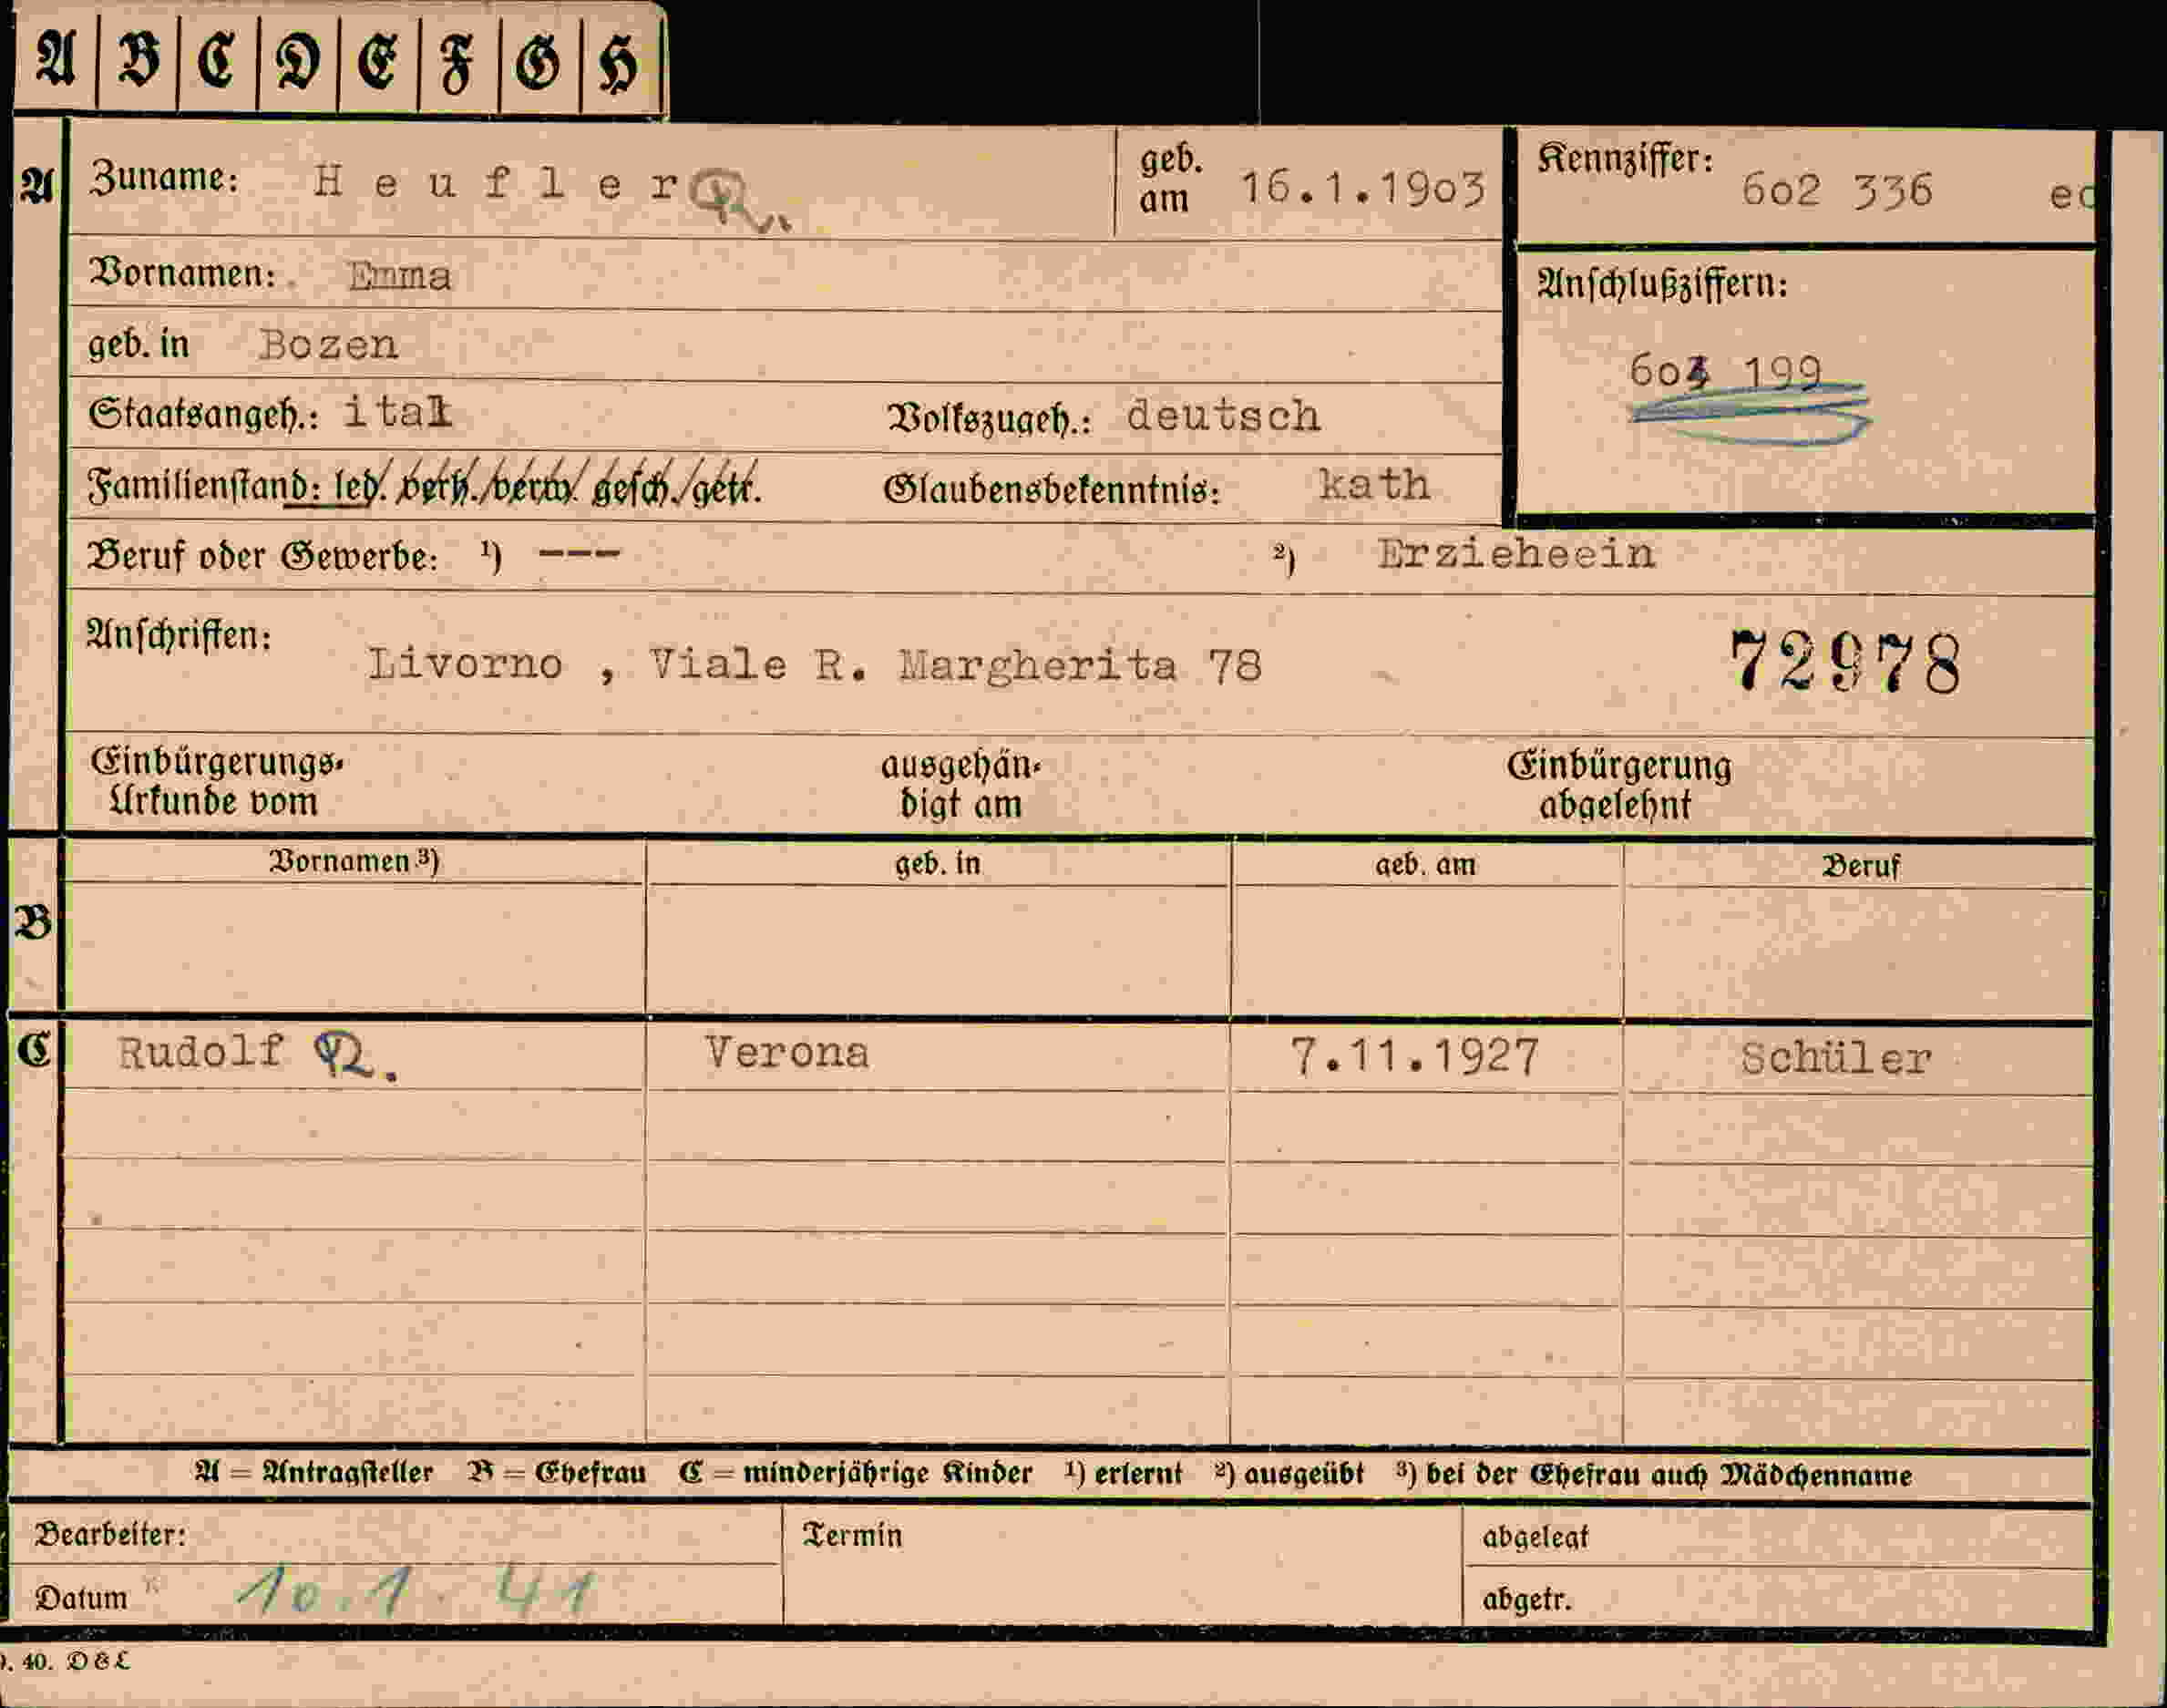 A B C D E F G H
A Zuname: Heufler geb. am 16.1.1903 Kennziffer: 602 336 ed
Vornamen: Emma Anschlußziffern:
geb. in Bozen 603 199
Staatsangeh.: ital Volkszugeh.: deutsch
Familienstand: led./verh./verw./gesch./getr. Glaubensbekenntnis: kath
Beruf oder Gewerbe: ¹) --- ²) Erzieheein
Anschriften: Livorno , Viale R. Margherita 78 72978
Einbürgerungs- ausgehän- Einbürgerung
Urkunde vom digt am abgelehnt
Vornamen ³) geb. in geb. am Beruf
B
C Rudolf Verona 7.11.1927 Schüler
A = Antragsteller B = Ehefrau C = minderjährige Kinder ¹) erlernt ²) ausgeübt ³) bei der Ehefrau auch Mädchenname
Bearbeiter: Termin abgelegt
Datum 10.1.41 abgetr.
40. D&L